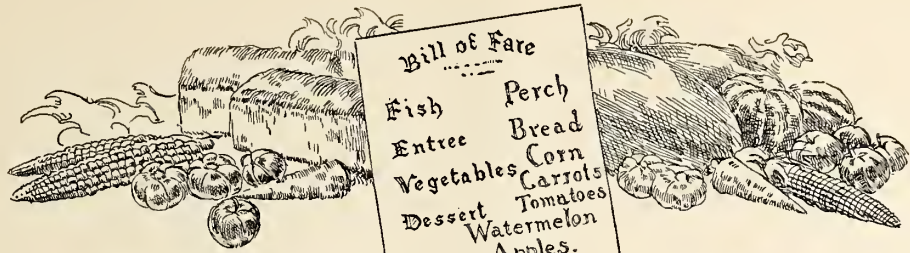 Bill of Fare
Fish Perch
Entree Bread
Vegetables Corn
Carrots
Tomatoes
Dessert Watermelon
Apples.